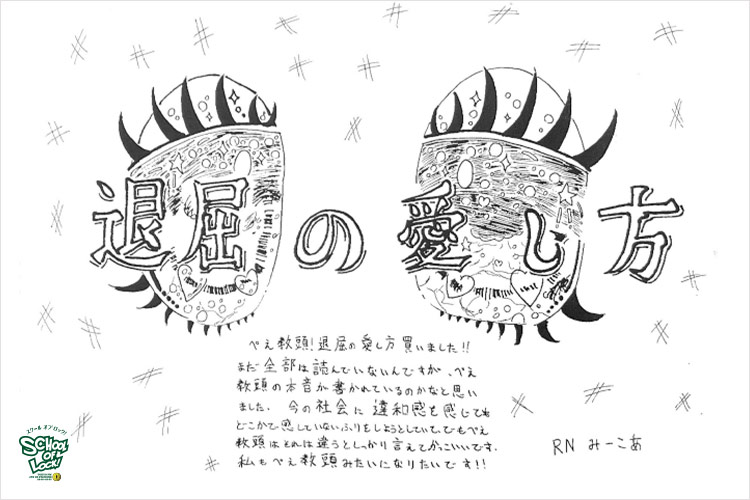 退屈の愛し方
ぺえ教頭!退屈の愛し方買いました!!
まだ全部は読んでいないんですが、ぺえ
教頭の本音が書かれているのかなと思い
ました。今の社会に違和感を感じても
どこかで感じていないふりをしようとしていて、でもぺえ
教頭はそれは違うとしっかり言えてかっこいいです。
私もぺえ教頭みたいになりたいです!!
RN みーこあ
スクール オブ ロック!
SCHOOL
OF
LOCK!